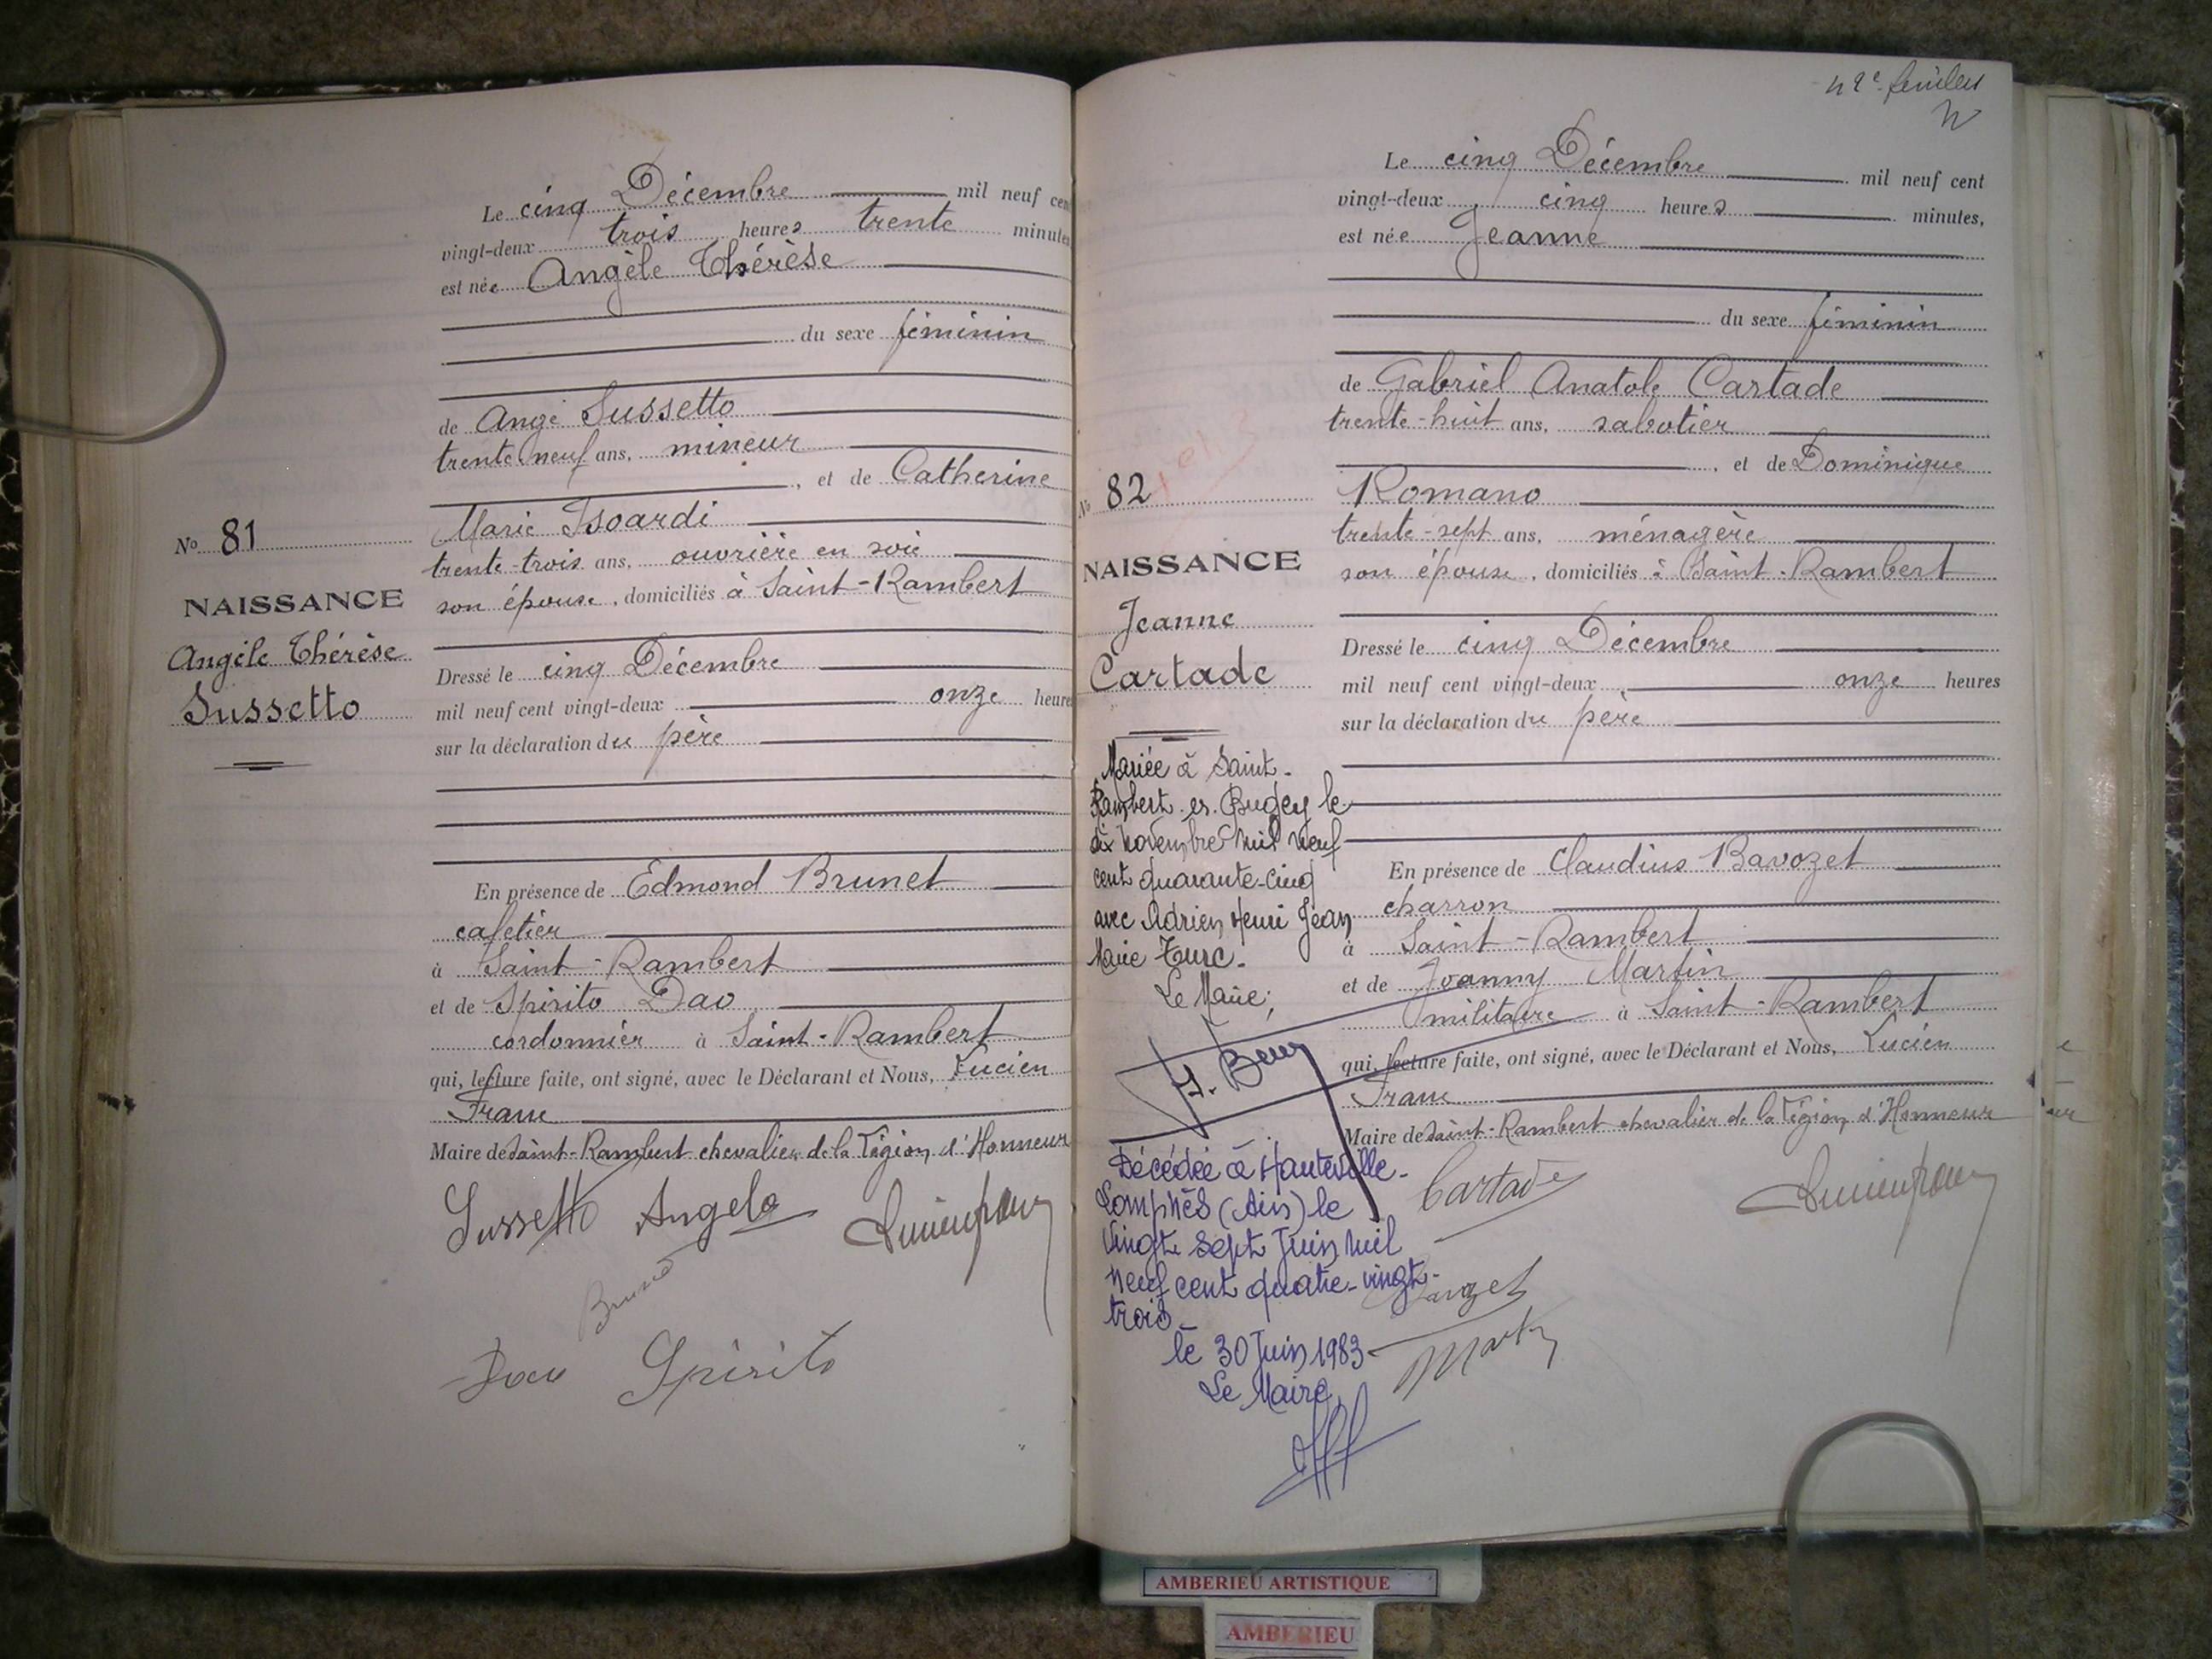 Le cinq Décembre mil neuf cen
vingt-deux trois heures trente minutes
est née Angèle Thérèse
du sexe féminin
de Ange Sussetto
trente neuf ans, mineur
, et de Catherine
Marie Isoardi
trente-trois ans, ouvrière en soie
son épouse, domiciliés à Saint-Rambert
Dressé le cinq Décembre
mil neuf cent vingt-deux onze heure
sur la déclaration du père
En présence de Edmond Brunet
cafetier
à Saint-Rambert
et de Spirito Dao
cordonnier à Saint-Rambert
qui, lecture faite, ont signé, avec le Déclarant et Nous, Lucien
Franc
Maire de Saint-Rambert chevalier de la Légion d'Honneur
Sussetto Angelo
Brunet
Dao Spirito
No 81
NAISSANCE
Angèle Thérèse
Sussetto
42e feuillet
Le cinq Décembre mil neuf cent
vingt-deux cinq heures minutes,
est née Jeanne
du sexe féminin
de Gabriel Anatole Cartade
trente-huit ans, sabotier
, et de Dominique
Romano
trente-sept ans, ménagère
son épouse, domiciliés à Saint-Rambert
Dressé le cinq Décembre
mil neuf cent vingt-deux onze heures
sur la déclaration du père
En présence de Claudius Bavozet
charron
à Saint-Rambert
et de Joanny Martin
militaire à Saint-Rambert
qui, lecture faite, ont signé, avec le Déclarant et Nous, Lucien
Franc
Maire de Saint-Rambert chevalier de la Légion d'Honneur
Cartade
Martin
No 82
NAISSANCE
Jeanne
Cartade
Mariée à Saint-
Rambert-en-Bugey le
dix Novembre mil neuf
cent quarante-cinq
avec Adrien Henri Jean
Marie Turc.
Le Maire;
Décédée à Hauteville-
Lompnès (Ain) le
Vingt sept Juin mil
neuf cent quatre-vingt-
trois
le 30 Juin 1983
Le Maire,
AMBERIEU ARTISTIQUE
AMBERIEU